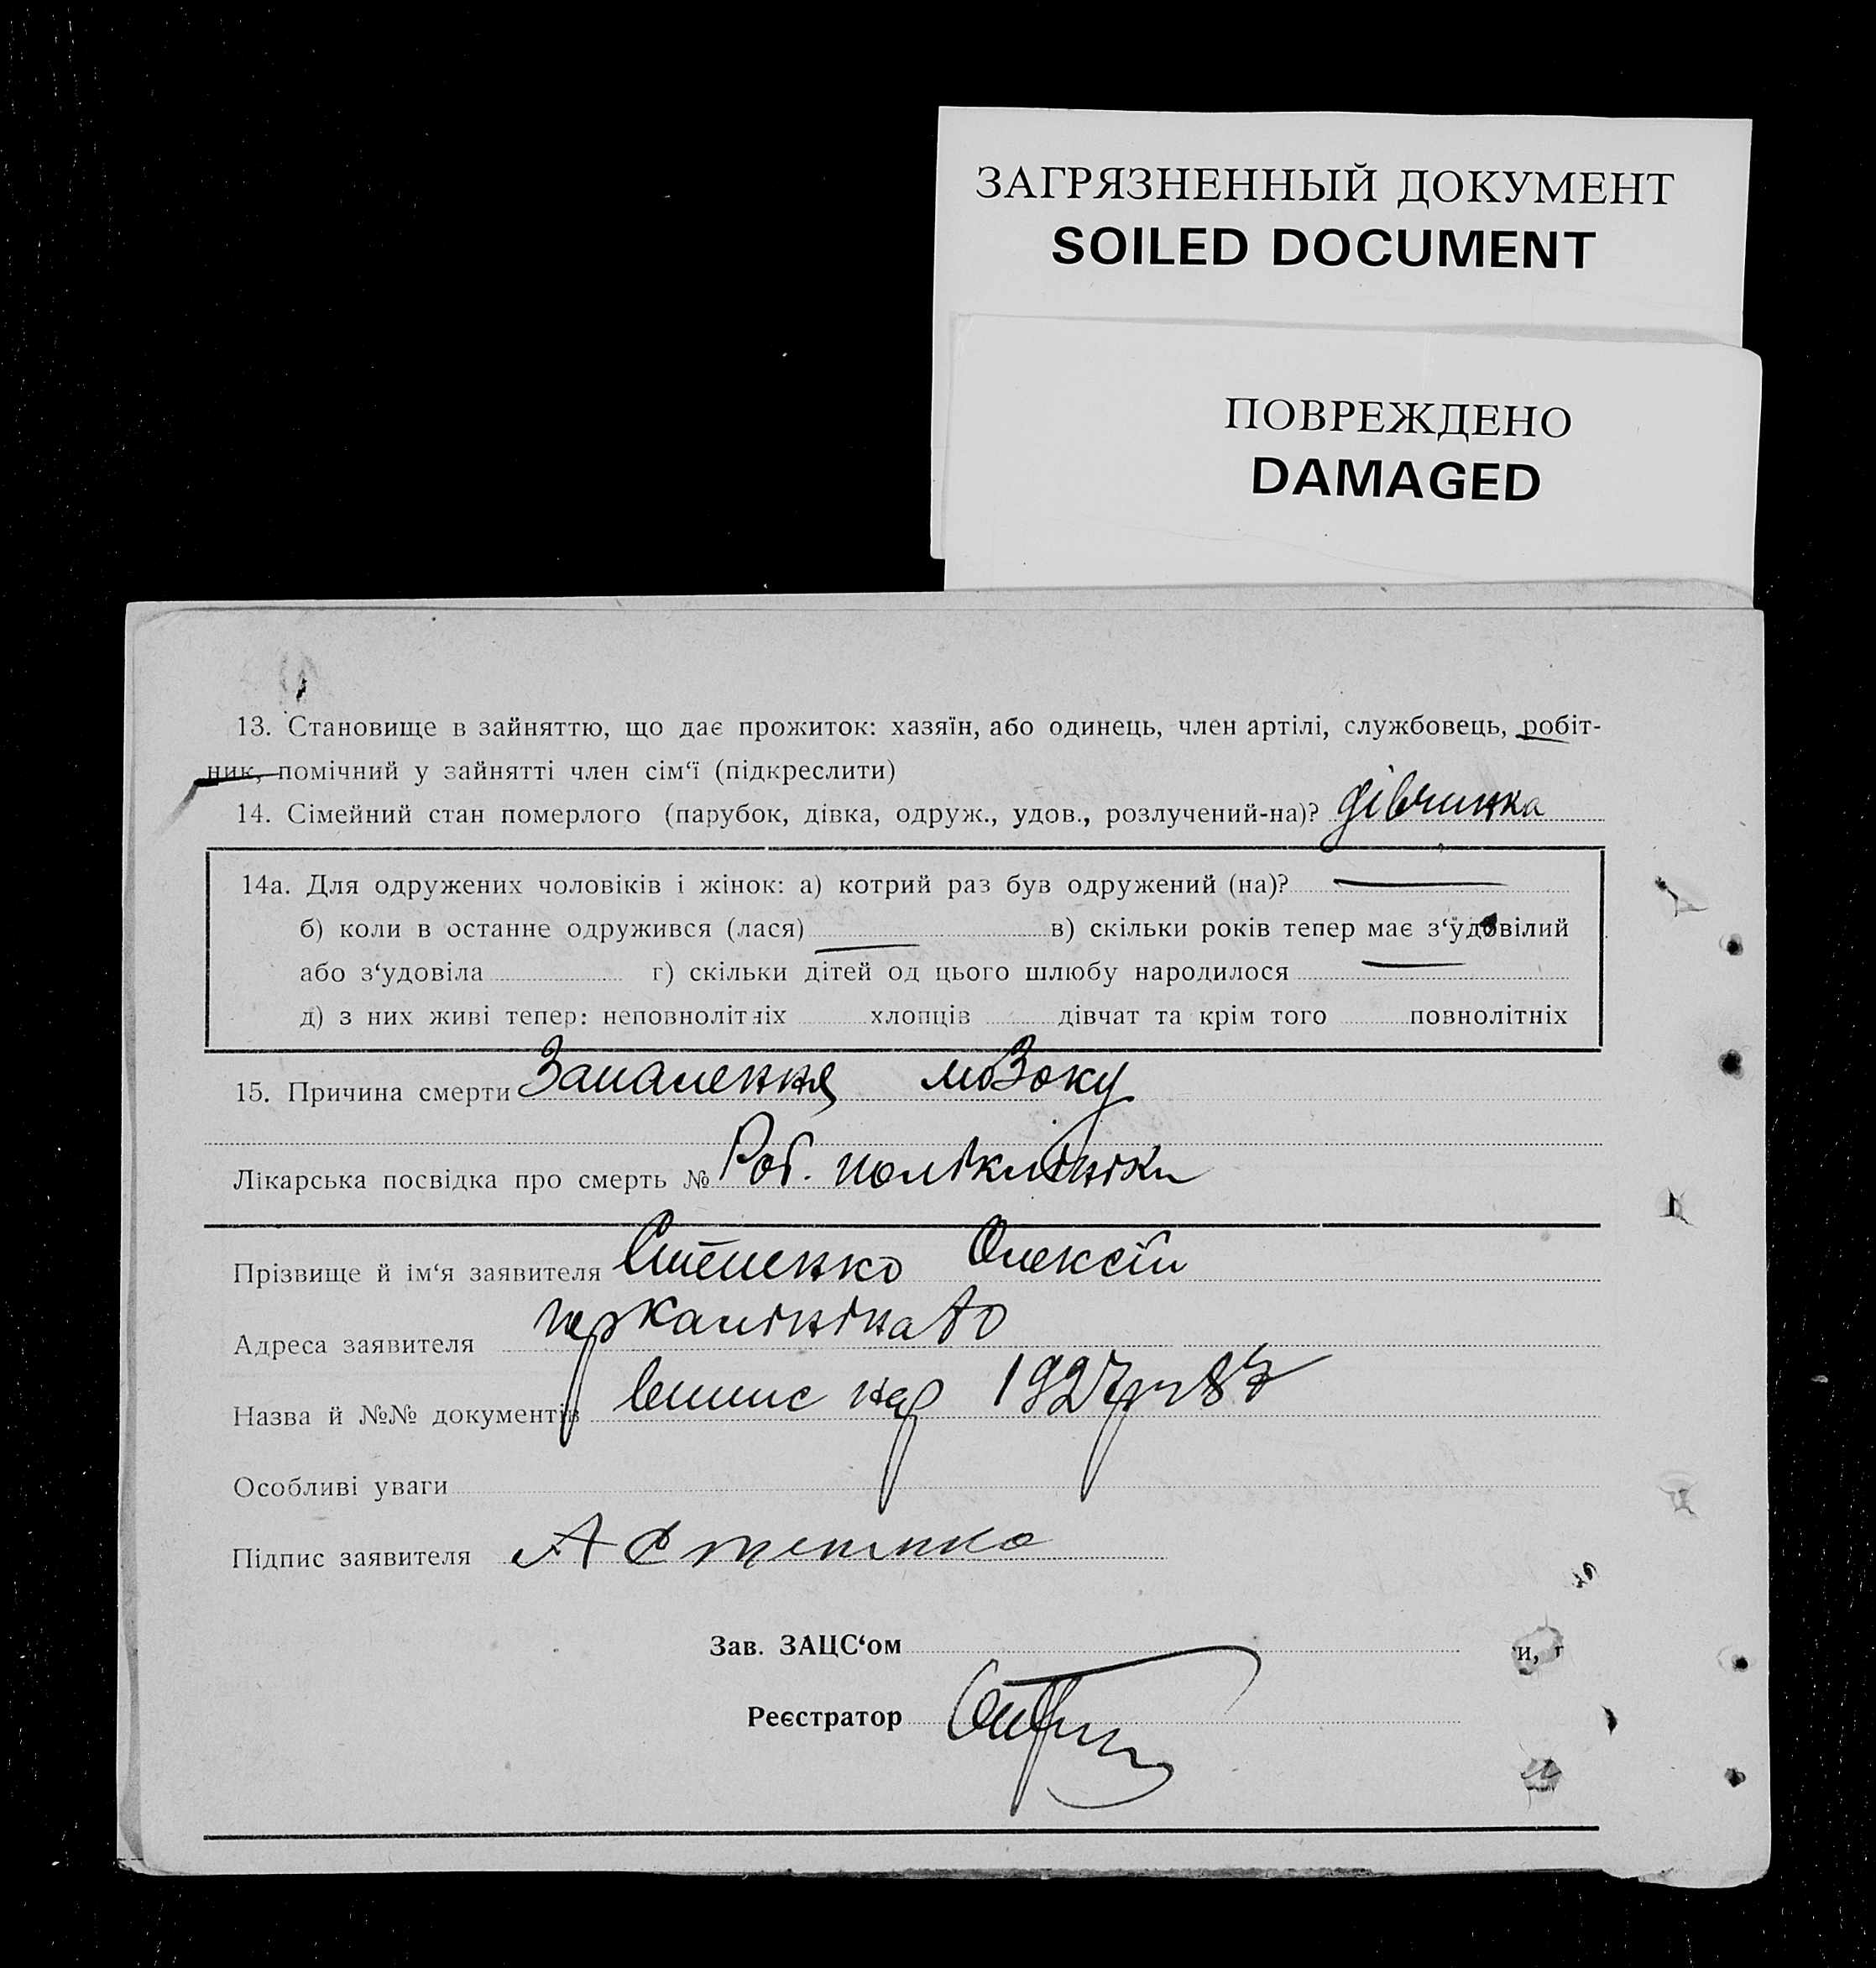 ЗАГРЯЗНЕННЫЙ ДОКУМЕНТ
SOILED DOCUMENT
ПОВРЕЖДЕНО
DAMAGED
13. Становище в зайняттю, що дає прожиток: хазяїн, або одинець, член артілі, службовець, робіт-
ник, помічний у зайнятті член сім‘ї (підкреслити)
14. Сімейний стан померлого (парубок, дівка, одруж., удов., розлучений-на)? дівчинка
14а. Для одружених чоловіків і жінок: а) котрий раз був одружений (на)?
б) коли в останнє одружився (лася) в) скільки років тепер має з‘удовілий
або з‘удовіла г) скільки дітей од цього шлюбу народилося
д) з них живі тепер: неповнолітніх хлопців дівчат та крім того повнолітніх
15. Причина смерти Запалення мозоку
Лікарська посвідка про смерть № Роб. поліклініки
Прізвище й ім‘я заявителя Степенко Олексій
Адреса заявителя
Назва й №№ документів нар 1927р
Особливі уваги
Підпис заявителя А Степенко
Зав. ЗАЦС‘ом
и, г
Реєстратор